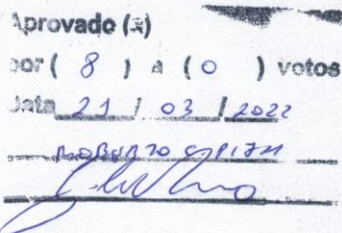 Aprovado (x)
por ( 8 ) a ( 0 ) votos
Data 21 / 03 / 2022